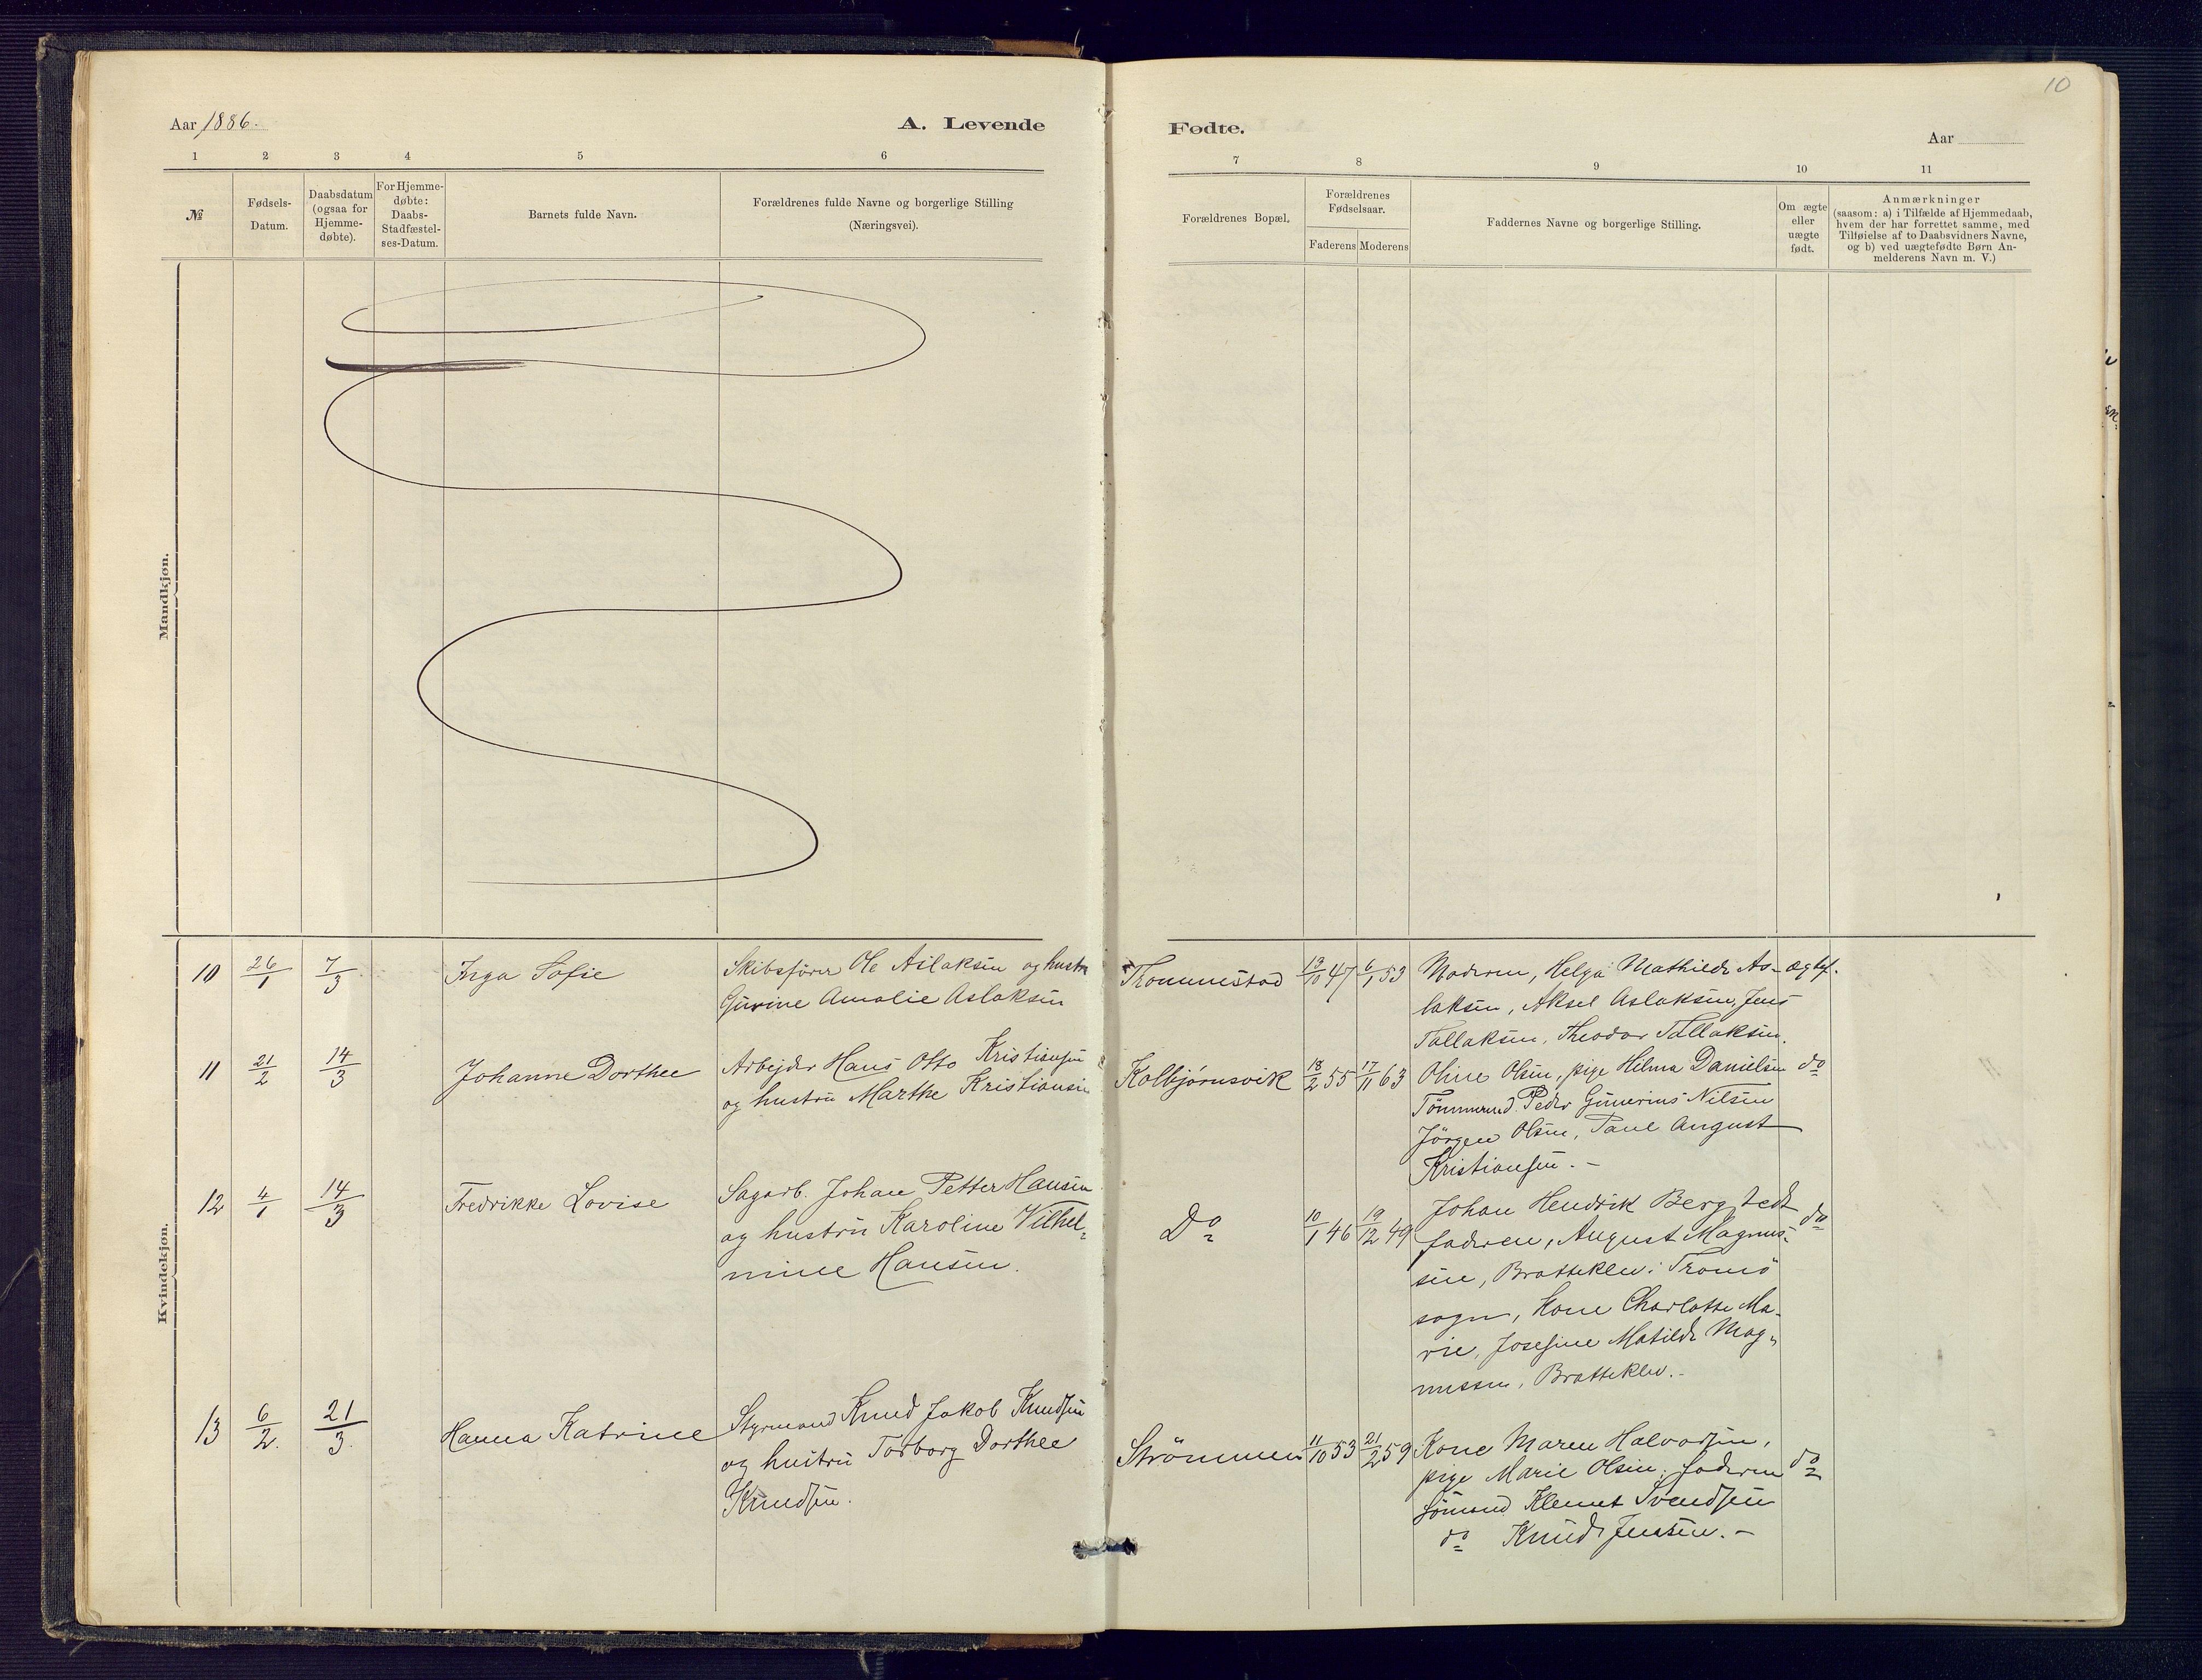 10
Aar 1886.
A. Levende
Fødte.
Aar
1 2 3 4 5 6
7 8 9 10 11
№
Fødsels-
Datum.
Daabsdatum
(ogsaa for
Hjemme-
døbte).
For Hjemme-
døbte:
Daabs-
Stadfæstel-
ses-Datum.
Barnets fulde Navn.
Forældrenes fulde Navne og borgerlige Stilling
(Næringsvei).
Forældrenes Bopæl.
Forældrenes
Fødselsaar.
Faderens Moderens
Faddernes Navne og borgerlige Stilling.
Om ægte
eller
uægte
født.
Anmærkninger
(saasom: a) i Tilfælde af Hjemmedaab,
hvem der har forrettet samme, med
Tilføielse af to Daabsvidners Navne,
og b) ved uægtefødte Børn An-
melderens Navn m. V.)
Mandkjøn.
Kvindekjøn.
10 26/1 7/3 Inga Sofie
Skibsfører Ole Aslaksen og hustr
Gurine Amalie Aslaksen
Thommestad 19/10 47 6/1 53
Moderen, Helga Mathilde As- ægtef.
laksen, Aksel Aslaksen, Jens
Tallaksen, Theodor Tallaksen.
11 21/2 14/3 Johanne Dorthee
Arbejder Hans Otto Kristiansen
og hustru Marthe Kristiansen
Kolbjørnsvik 18/2 55 17/11 63
Oline Olsen, pige Hilma Danielsen do
Tømmermd. Peder Gunerius Nilsen
Jörgen Olsen, Paul August
Kristiansen. -
12 4/1 14/3 Fredrikke Lovise
Sagarb. Johan Petter Hansen
og hustru Karoline Vilhel-
mine Hansen.
Do 10/1 46 19/12 49
Johan Hendrik Bergstedt do
faderen, August Magnus-
sen, Bratteklev i Tromö
sogn, Kone Charlotte Ma-
rie, Josefine Matilde Mag-
nussen, Bratteklev. -
13 6/2 21/3 Hanna Katrine
Styrmand Knud Jakob Knudsen
og hustru Torborg Dorthee
Knudsen.
Strömmen 11/10 53 21/2 59
Kone Maren Halvorsen,
pige Marie Olsen, faderen do
sömand Klemet Svendsen
do Knud Jensen. -